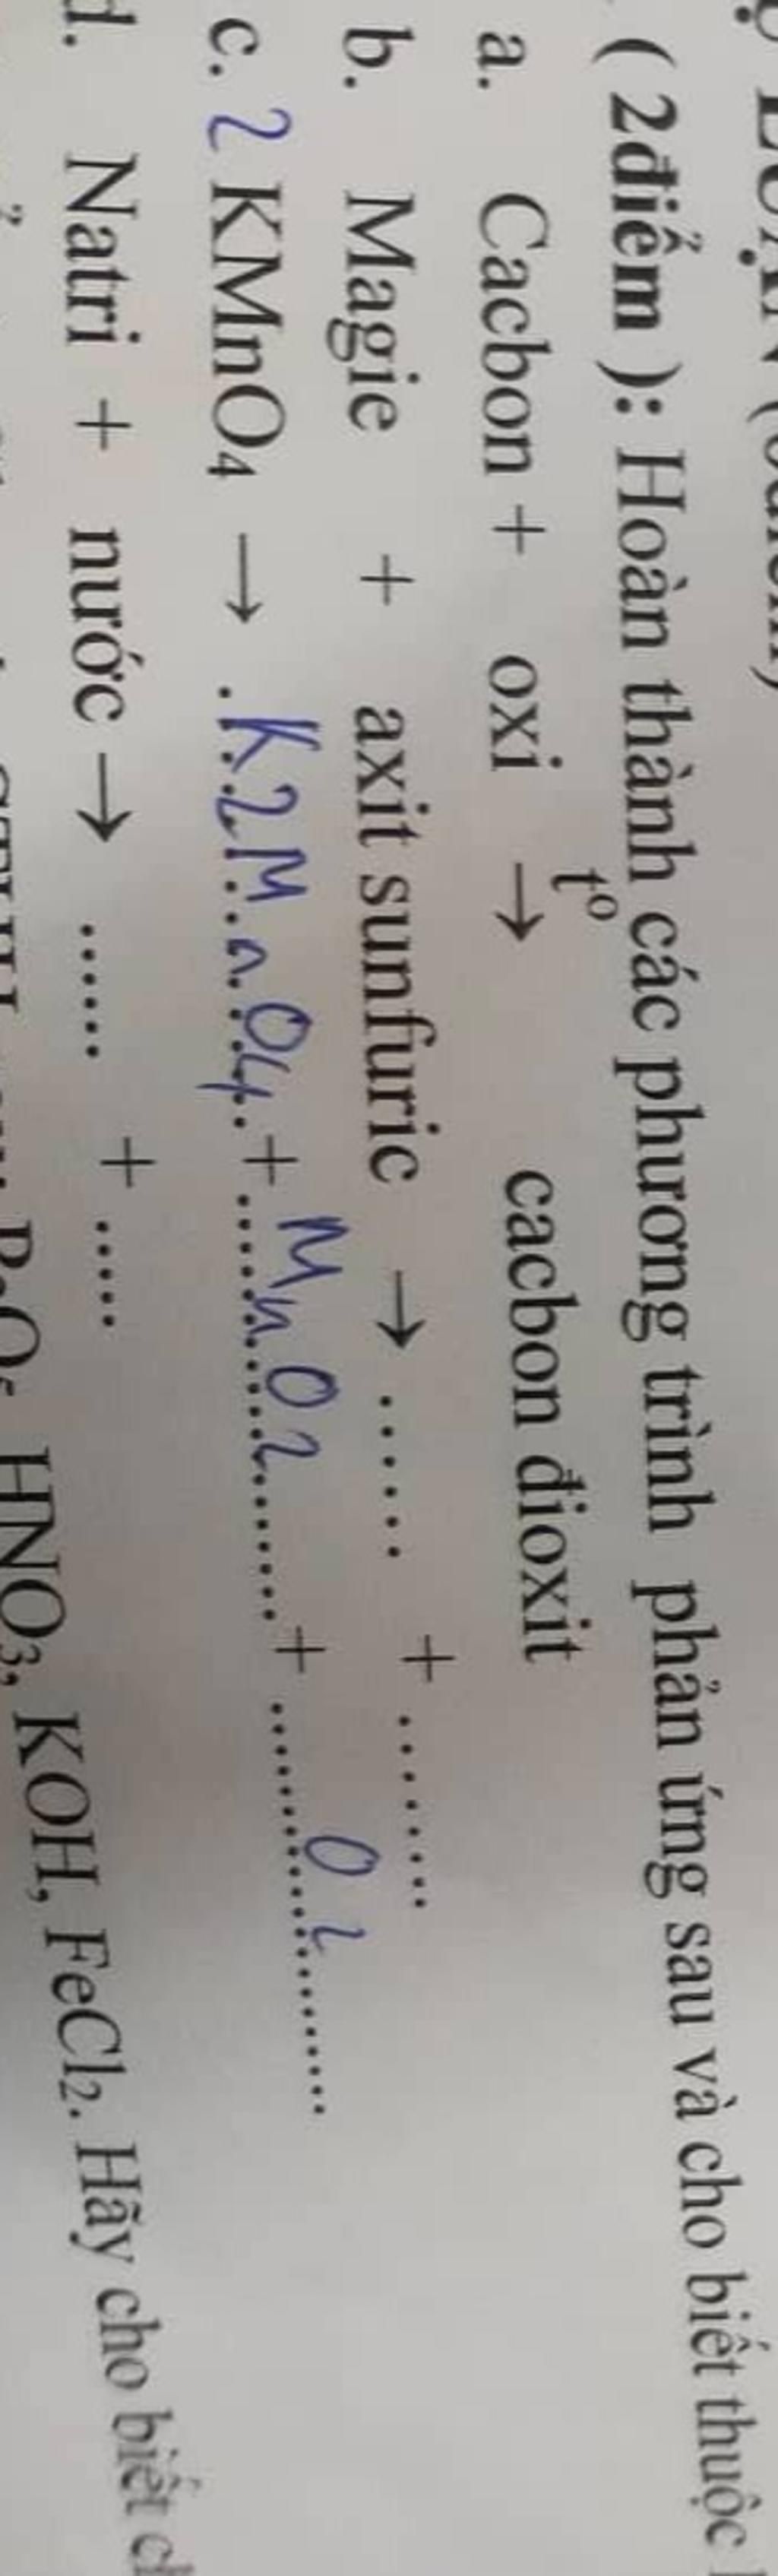 ( 2điểm ): Hoàn thành các phương trình phản ứng sau và cho biết thuộc
a. Cacbon + oxi t⁰ → cacbon đioxit
b. Magie + axit sunfuric → ...... + .........
c. 2 KMnO₄ → .K2MnO4.+ MnO2 + O2
d. Natri + nước → ...... + .....
HNO₃, KOH, FeCl₂. Hãy cho biết